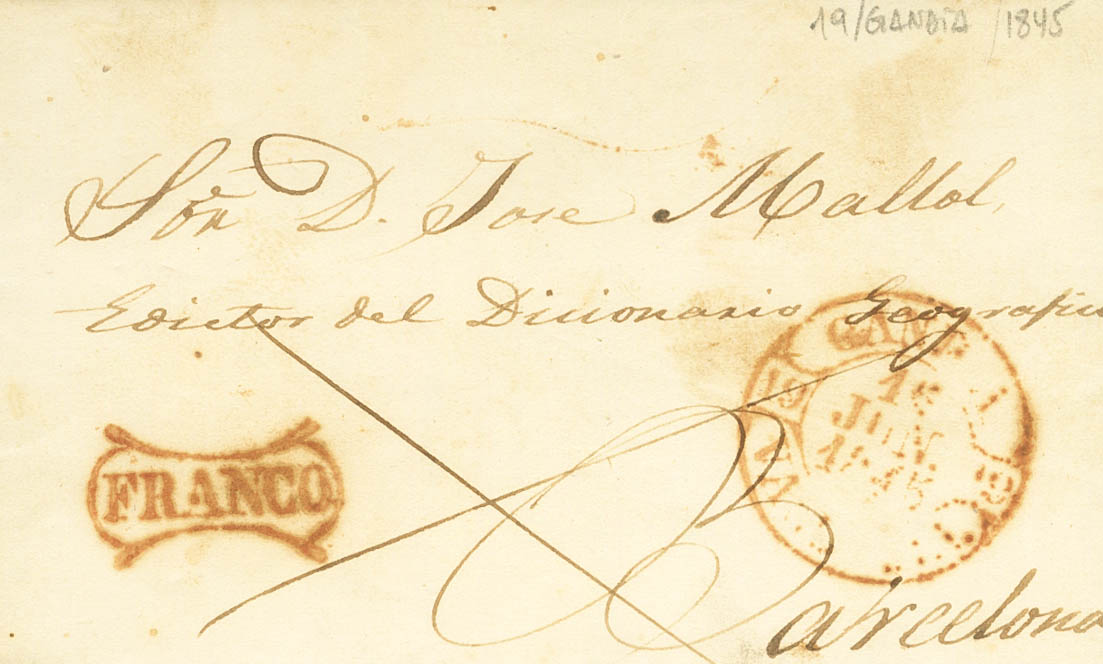 19/GANDIA /1845
Sor. D. Jose Mallol,
Edictor del Dicionario Geografico
FRANCO
GANDIA
19
JUN
1845
Barcelona